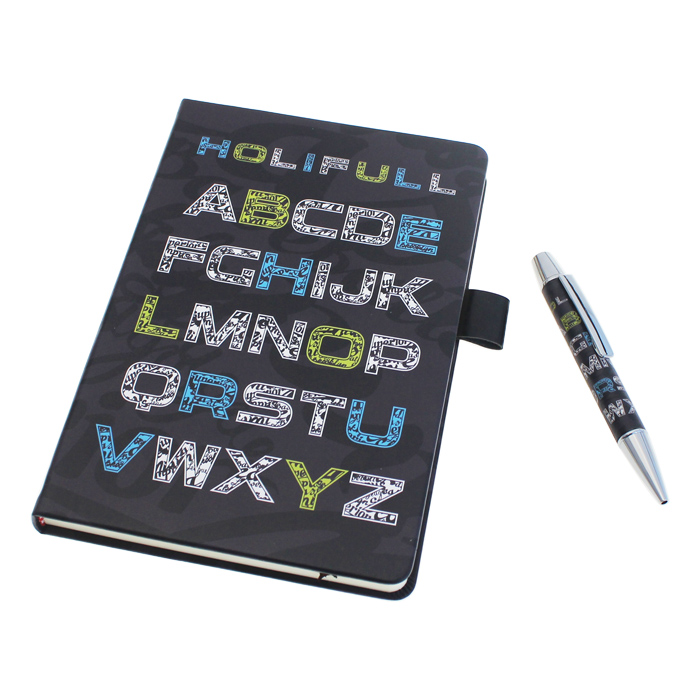 HOLIFULL
ABCDE
FGHIJK
LMNOP
QRSTU
VWXYZ